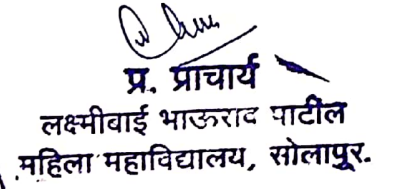 प्र. प्राचार्य
लक्ष्मीबाई भाऊराव पाटील
महिला महाविद्यालय, सोलापूर.